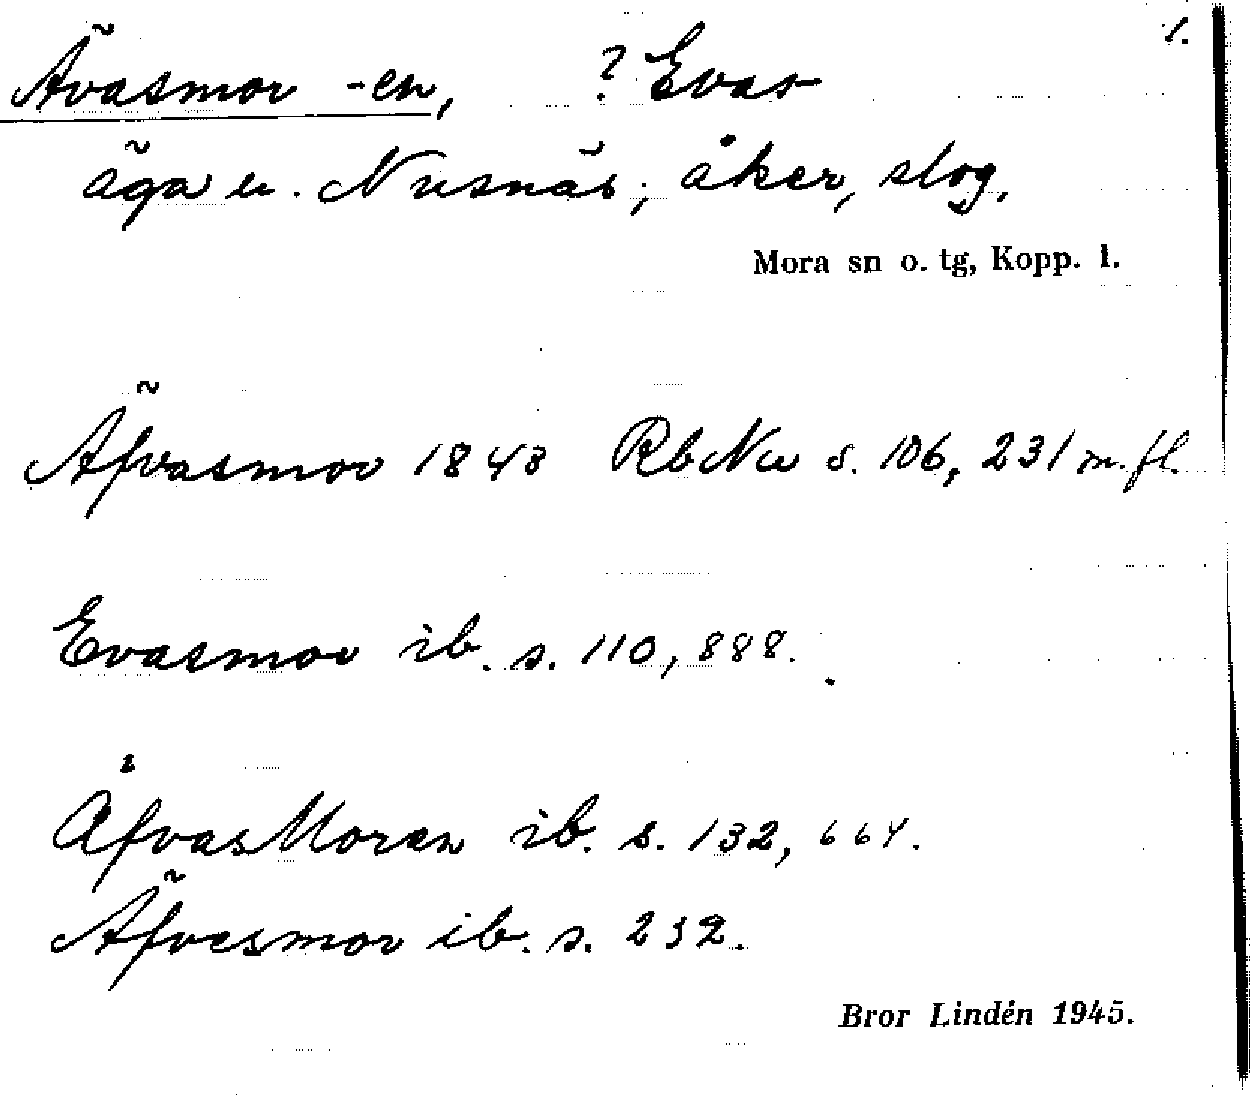 1.
Ävasmor -en, ? Evas
äga u. Nusnäs; åker, slog.
Mora sn o. tg, Kopp. l.
Äfvasmor 1843 RbNu s. 106, 231 m. fl.
Evasmor ib. s. 110, 888.
ÅfvasMoren ib. s. 132, 664.
Äfvesmor ib. s. 232.
Bror Lindén 1945.